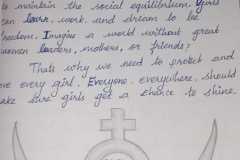 to maintain the social equilibrium. Girls
can learn, work, and dream to be
freedom. Imagine a world without great
women leaders, mothers, or friends?
Thats why we need to protect and
love every girl. Everyone, everywhere, should
make sure girls get a chance to shine.